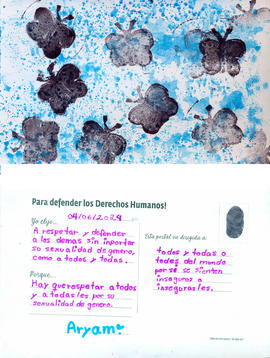 Para defender los Derechos Humanos!
Yo elijo...
04/06/2024
A respetar y defender
a los demas sin inportar
su sexualidad de genero,
como a todos y todas.
Porque...
Hay que respetar a todos
y a todas les por su
sexualidad de genero.
Aryam
Esta postal va dirigida a:
todos y todas a
todes del mundo
por se se sienten
inseguros a
inseguras les.